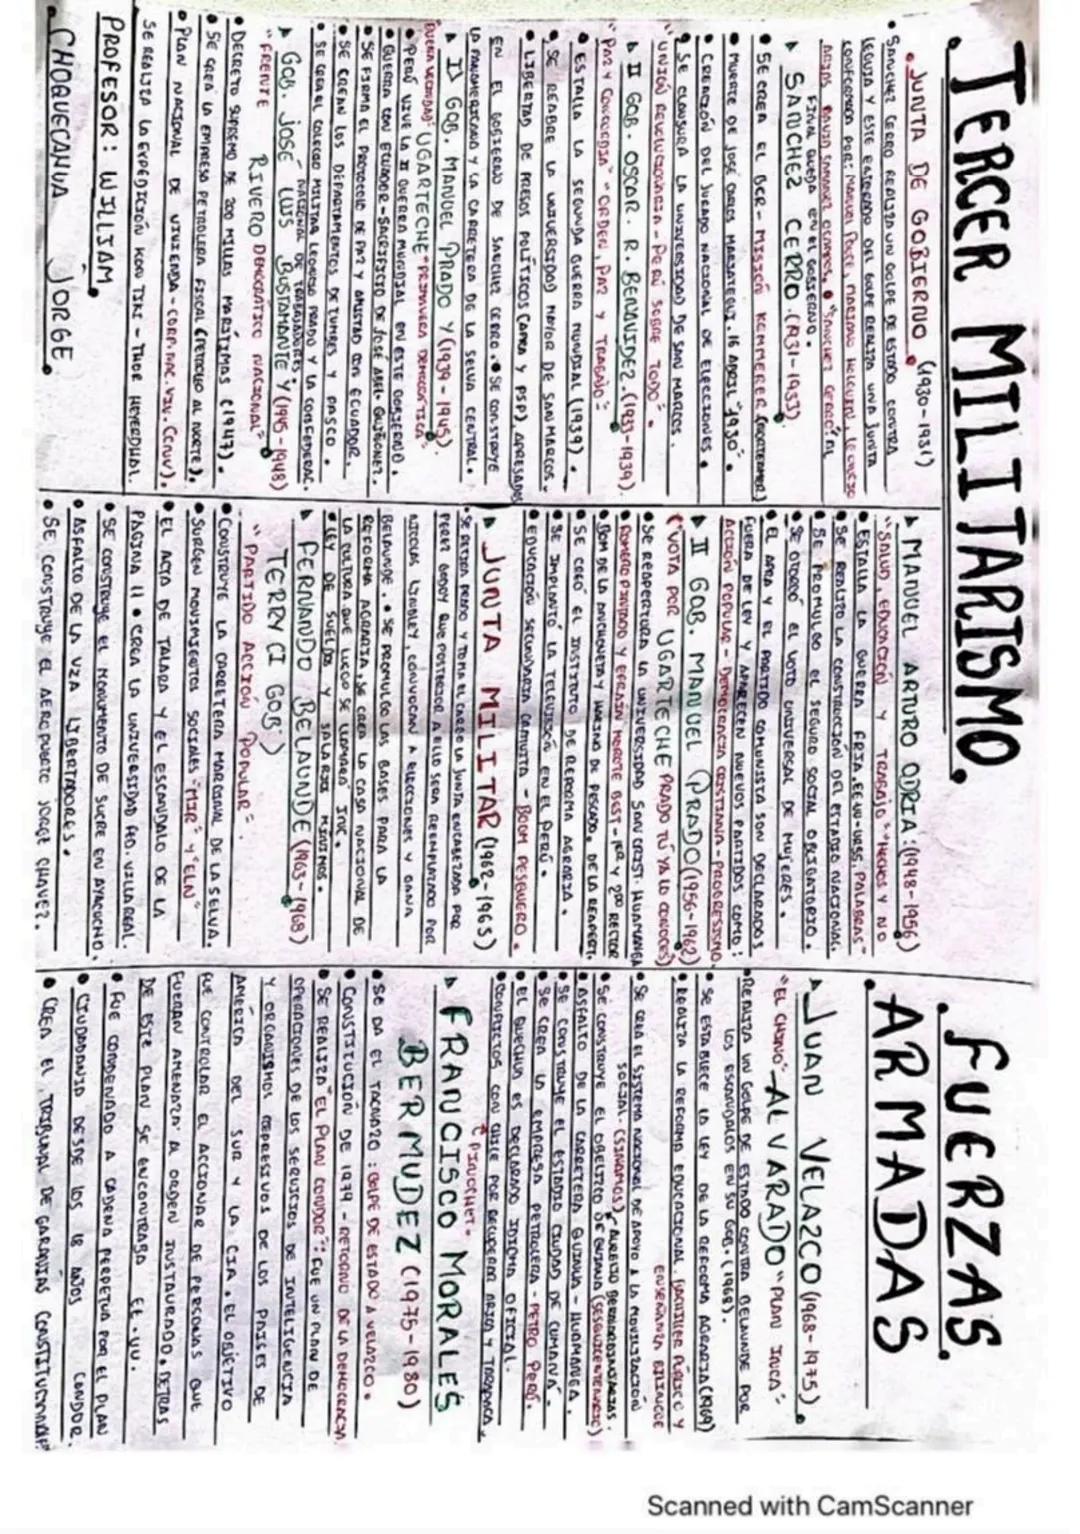 TERCER MILITARISMO.
• JUNTA DE GOBIERNO (1930-1931)
• SANCHEZ CERRO REALIZA UN GOLPE DE ESTADO CONTRA
LEGUIA Y ESTE ENTERADO DEL GOLPE REALIZA UNA JUNTA
CONFORMADA POR: MANUEL PONCE, MARIANO HOLGUIN,
FINAL QUEDA EN EL GOBIERNO.
▸ SANCHEZ CERRO. (1931-1933)
• SE CREA EL BCR - MISIÓN KEMMERER
• MUERTE DE JOSÉ CARLOS MARIATEGUI. 16 ABRIL "1930".
• CREACIÓN DEL JURADO NACIONAL DE ELECCIONES.
• SE CLAUSURA LA UNIVERSIDAD DE SAN MARCOS.
"UNIÓN REVOLUCIONARIA - PERÚ SOBRE TODO"
▸ II GOB. OSCAR. R. BENAVIDEZ. (1933-1939).
"PAZ Y CONCORDIA" "ORDEN, PAZ Y TRABAJO"
• ESTALLA LA SEGUNDA GUERRA MUNDIAL (1939).
• SE REABRE LA UNIVERSIDAD MAYOR DE SAN MARCOS.
• LIBERTAD DE PRESOS POLÍTICOS (APRA Y PSP), APRESADOS
EN EL GOBIERNO DE SANCHEZ CERRO. • SE CONSTRUYE
LA PANAMERICANA Y LA CARRETERA DE LA SELVA CENTRAL.
▸ I GOB. MANUEL PRADO Y (1939-1945)
UGARTECHE "PRIMAVERA DEMOCRÁTICA"
• PERÚ VIVE LA II GUERRA MUNDIAL EN ESTE GOBIERNO.
• GUERRA CON ECUADOR - SACRIFICIO DE JOSÉ ABEL. QUIÑONEZ.
• SE FIRMA EL PROTOCOLO DE PAZ Y AMISTAD CON ECUADOR.
• SE CREAN LOS DEPARTAMENTOS DE TUMBES Y PASCO.
• SE CREA EL COLEGIO MILITAR LEONCIO PRADO Y LA CONFEDERAC.
NACIONAL DE TRABAJADORES.
▸ GOB. JOSÉ LUIS BUSTAMANTE Y (1945-1948)
RIVERO
"FRENTE DEMOCRÁTICO NACIONAL"
• DECRETO SUPREMO DE 200 MILLAS MARÍTIMAS (1947).
• SE CREA LA EMPRESA PETROLERA FISCAL (PETRÓLEO AL NORTE).
• PLAN NACIONAL DE VIVIENDA - CORP. NAC. VIV. (CNV).
SE REALIZA LA EXPEDICIÓN KON TIKI - THOR HEYERDHAL.
PROFESOR: WILLIAM.
CHOQUECAHUA JORGE.
▸ MANUEL ARTURO ODRIA: (1948-1956)
"SALUD, EDUCACIÓN Y TRABAJO" "HECHOS Y NO
PALABRAS"
• ESTALLA LA GUERRA FRIA. EE.UU-URSS.
• SE REALIZO LA CONSTRUCCIÓN DEL ESTADIO NACIONAL.
• SE PROMULGO EL SEGURO SOCIAL OBLIGATORIO.
• SE OTORGÓ EL VOTO UNIVERSAL DE MUJERES.
• EL APRA Y EL PARTIDO COMUNISTA SON DECLARADOS
FUERA DE LEY Y APARECEN NUEVOS PARTIDOS COMO:
ACCIÓN POPULAR - DEMOCRACIA CRISTIANA - PROGRESISMO.
▸ II GOB. MANUEL PRADO (1956-1962)
("VOTA POR UGARTECHE PRADO TÚ YA LO CONOCES)
• SE REAPERTURA LA UNIVERSIDAD SAN CRIST. HUAMANGA
ROMERO PINTADO Y EFRAIN MOROTE BEST - 1ER Y 2DO RECTOR
• BOM DE LA ANCHOVETA Y HARINA DE PESCADO, DE LA REAPERT.
• SE CREÓ EL INSTITUTO DE REFORMA AGRARIA.
• SE IMPLANTÓ LA TELEVISIÓN EN EL PERÚ.
• EDUCACIÓN SECUNDARIA GRATUITA - BOOM PESQUERO.
▸ JUNTA MILITAR (1962-1963)
• SE RETIRA PRADO Y TOMA EL CARGO LA JUNTA ENCABEZADA POR
PEREZ GODOY QUE POSTERIOR A ELLO SERA REEMPLAZADO POR
NICOLAS LINDLEY, CONVOCAN A ELECCIONES Y GANA
BELAUNDE. • SE PROMULGO LAS BASES PARA LA
REFORMA AGRARIA, SE CREA LA CASA NACIONAL DE
LA CULTURA QUE LUEGO SE LLAMARÁ INC.
• LEY DE SUELDOS Y SALARIOS MINIMOS.
▸ FERNANDO BELAUNDE (1963-1968)
TERRY (I GOB.)
"PARTIDO ACCIÓN POPULAR".
• CONSTRUYE LA CARRETERA MARGINAL DE LA SELVA.
• SURGEN MOVIMIENTOS SOCIALES "MIR" Y "ELN"
• EL ACTA DE TALARA Y EL ESCANDALO DE LA
PAGINA 11 • CREA LA UNIVERSIDAD FED. VILLAREAL.
• SE CONSTRUYE EL MONUMENTO DE SUCRE EN AYACUCHO.
• ASFALTO DE LA VIA LIBERTADORES.
• SE CONSTRUYE EL AEROPUERTO JORGE CHAVEZ.
. FUERZAS.
. ARMADAS
▸ JUAN VELAZCO (1968-1975)
"EL CHINO" ALVARADO "PLAN INCA"
• REALIZA UN GOLPE DE ESTADO CONTRA BELAUNDE POR
LOS ESCANDALOS EN SU GOB. (1968).
• SE ESTABLECE LA LEY DE LA REFORMA AGRARIA (1969)
• REALIZA LA REFORMA EDUCACIONAL, BACHILLER PÚBLICO Y
ENSEÑANZA BILINGÜE
• SE CREA EL SISTEMA NACIONAL DE APOYO A LA MOVILIZACIÓN
SOCIAL. (SINAMOS)
• SE CONSTRUYE EL OBELISCO DE QUINUA (SESQUICENTENARIO)
• ASFALTO DE LA CARRETERA QUINUA - HUAMANGA.
• SE CONSTRUYE EL ESTADIO CIUDAD DE CUMANÁ.
• SE CREA LA EMPRESA PETROLERA - PETRO PERÚ.
• EL QUECHUA ES DECLARADO IDIOMA OFICIAL.
• CONFLICTOS CON CHILE POR RECUPERAR ARICA Y TARAPACA.
PINOCHET.
▸ FRANCISCO MORALES
BERMUDEZ (1975-1980)
• SE DA EL TACNAZO: GOLPE DE ESTADO A VELAZCO.
• CONSTITUCIÓN DE 1979 - RETORNO DE LA DEMOCRACIA
• SE REALIZA "EL PLAN CONDOR": FUE UN PLAN DE
OPERACIONES DE LOS SERVICIOS DE INTELIGENCIA
Y ORGANISMOS REPRESIVOS DE LOS PAISES DE
AMÉRICA DEL SUR Y LA CIA. EL OBJETIVO
FUE CONTROLAR EL ACCIONAR DE PERSONAS QUE
FUERAN AMENAZA AL ORDEN INSTAURADO, DETRAS
DE ESTE PLAN SE ENCONTRABA EE.UU.
• FUE CONDENADO A CADENA PERPETUA POR EL PLAN
CONDOR.
• CIUDADANIA DESDE LOS 18 AÑOS
• CREA EL TRIBUNAL DE GARANTIAS CONSTITUCIONALES
Scanned with CamScanner